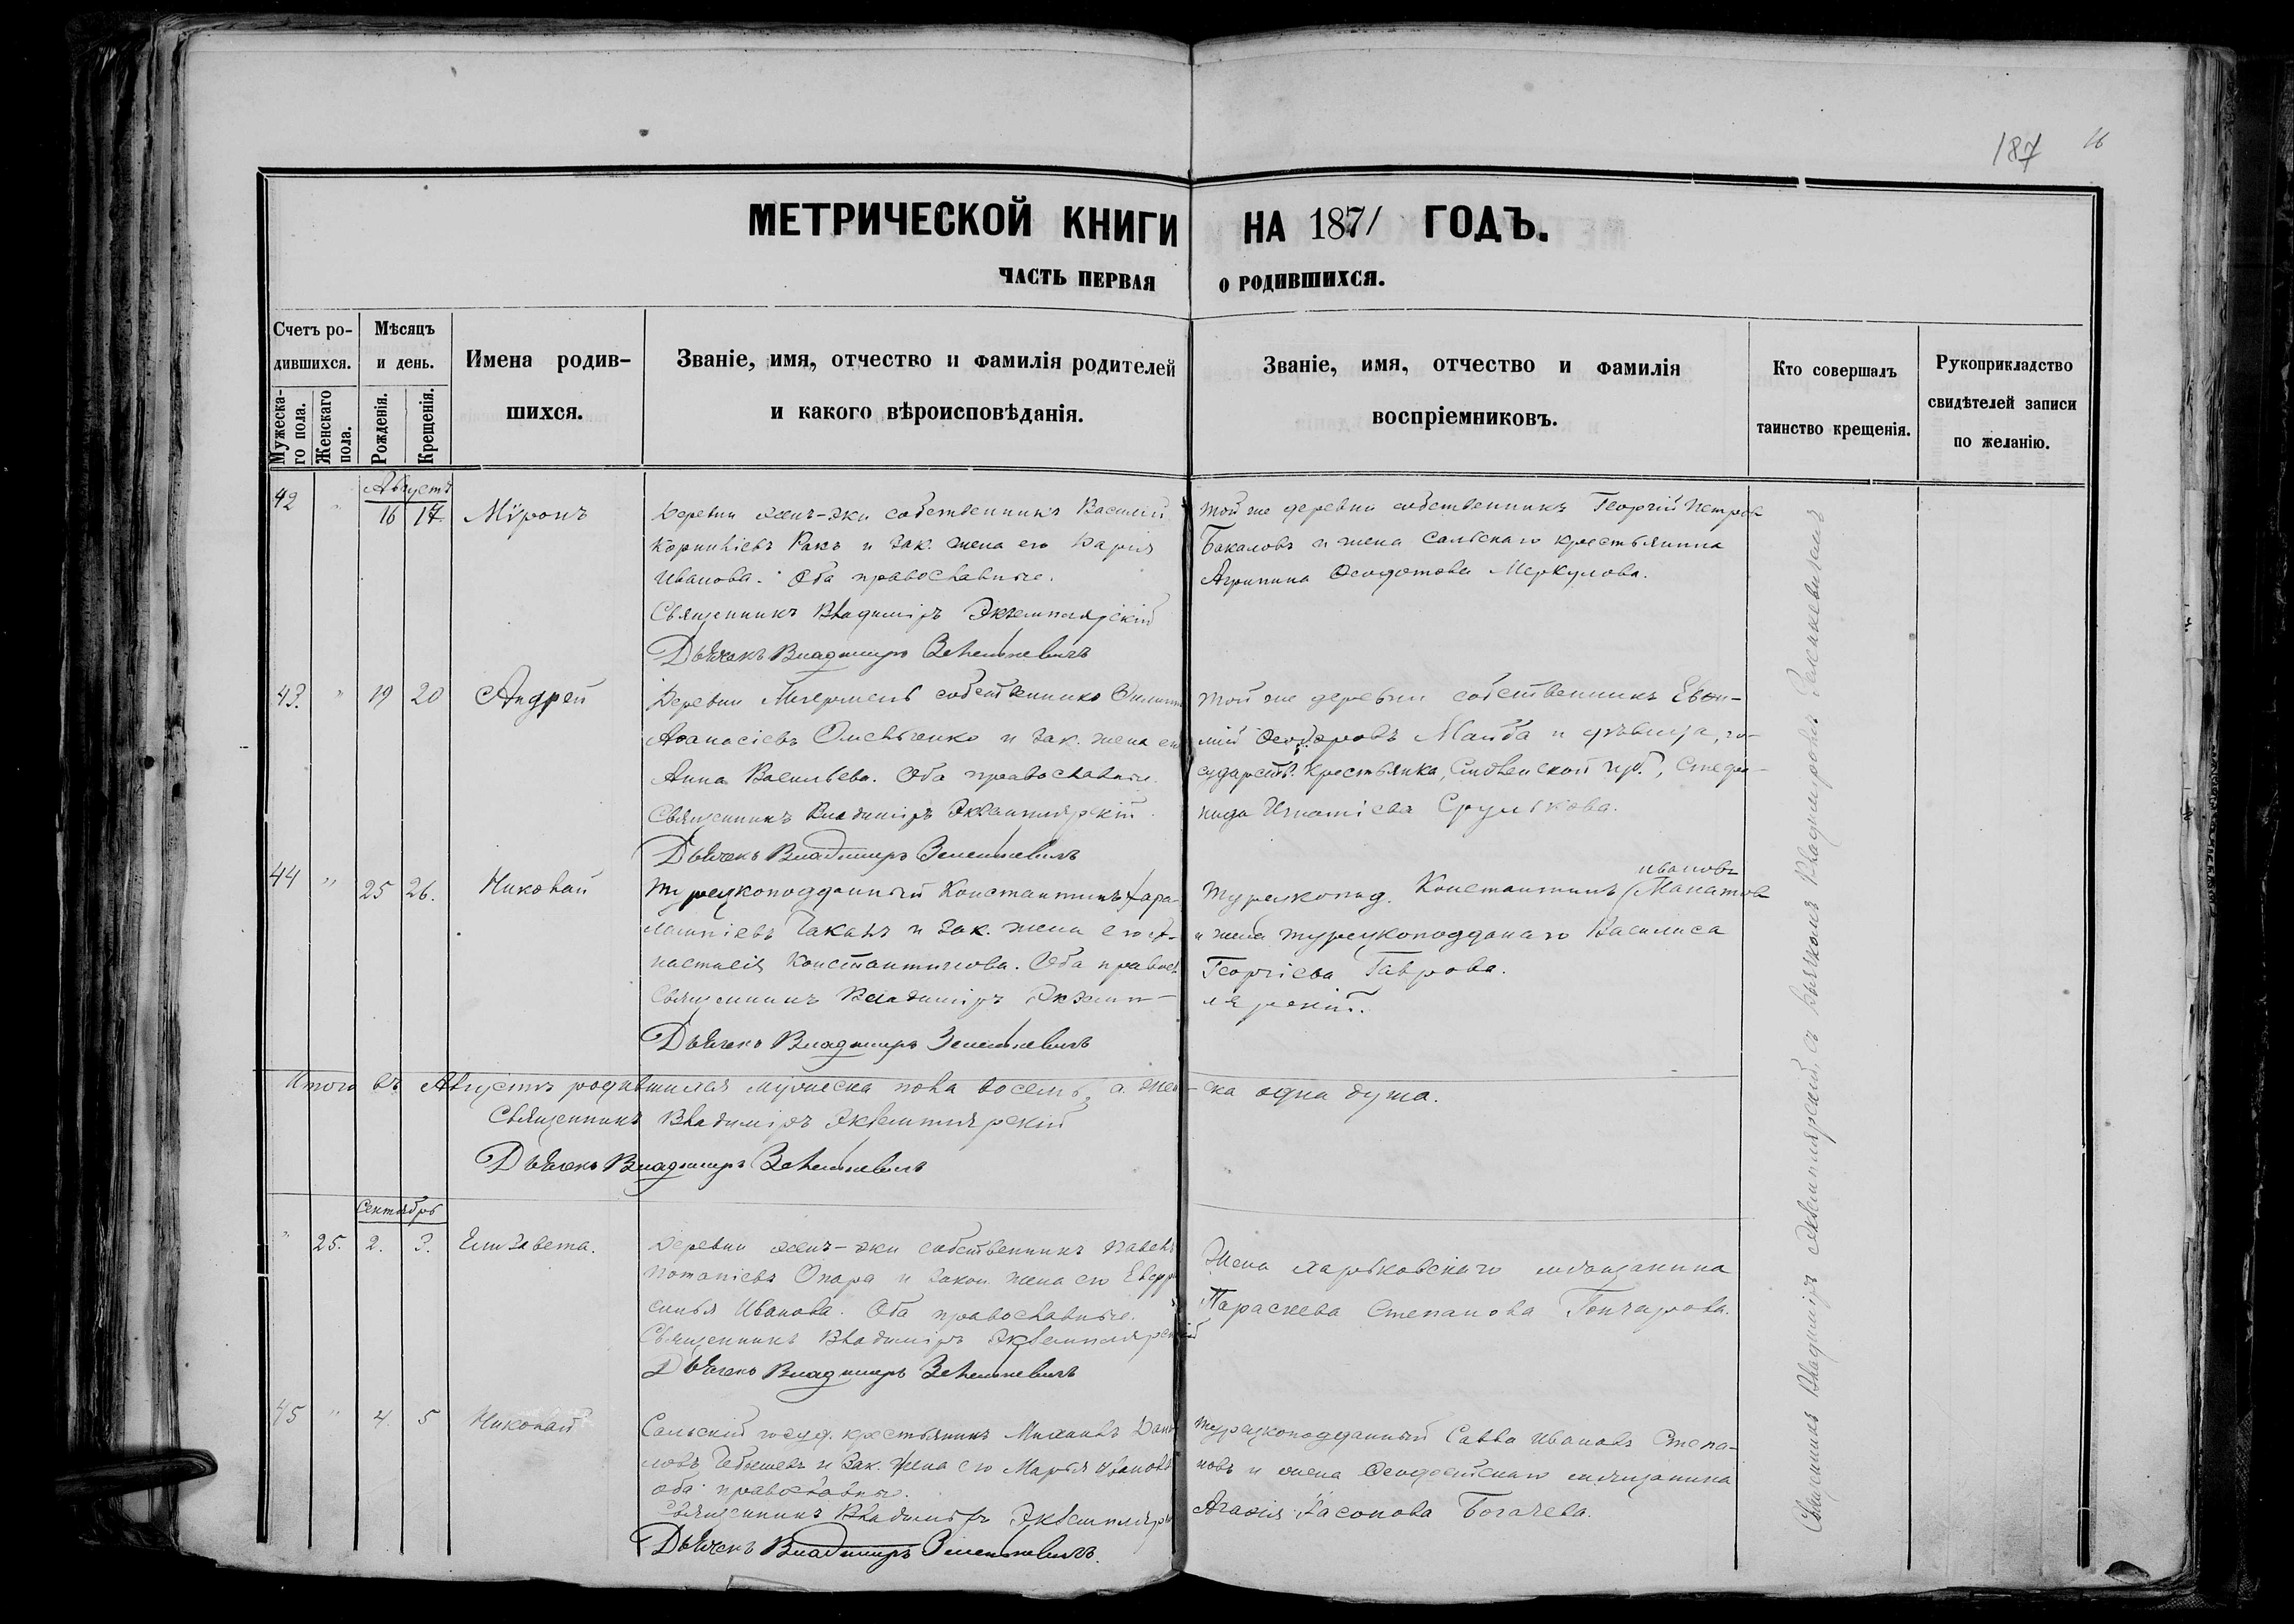 187 16
МЕТРИЧЕСКОЙ КНИГИ НА 1871 ГОДЪ.
ЧАСТЬ ПЕРВАЯ О РОДИВШИХСЯ.
Счетъ ро-
дившихся.
Мужеска-
го пола.
Женскаго
пола.
Мѣсяцъ
и день.
Рожденія.
Крещенія.
Имена родив-
шихся.
Званіе, имя, отчество и фамилія родителей
и какого вѣроисповѣданія.
Званіе, имя, отчество и фамилія
воспріемниковъ.
Кто совершалъ
таинство крещенія.
Рукоприкладство
свидѣтелей записи
по желанію.
Августъ
42 " 16 17 Мѵронъ
Деревни собственникъ Василій
Корниліевъ Ракъ и зак. жена его Дарія
Иванова. Оба православные.
Священникъ Владиміръ Экземплярскій
Дьячекъ Владимиръ Зеленкевичъ
Той же деревни собственникъ Георгій Петровъ
Бакаловъ и жена Сальскаго крестьянина
Агрипина Ѳеодотова Меркулова.
43. " 19 20 Андрей
Деревни собственникъ Филиппъ
Аѳанасіевъ Омельченко и зак. жена его
Анна Васильева. Оба православные.
Священникъ Владиміръ Экземплярскій.
Дьячекъ Владимиръ Зеленкевичъ
Той же деревни собственникъ Евѳи-
мій Ѳеодоровъ Майба и дѣвица, го-
сударств. крестьянка, губ., Стефа-
нида Игнатіева
44 " 25 26. Николай
Турецкоподданный Константинъ Хара-
лампіевъ Чакалъ и зак. жена его А-
настасія Константинова. Оба правосл.
Священникъ Владиміръ Экземп-
лярскій.
Дьячекъ Владимиръ Зеленкевичъ
Турецкопод. Константинъ Ивановъ
и жена турецкоподданаго Василиса
Георгіева Гаврова.
Итого въ Августѣ родившихся мужеска пола восемь, а жен-ска одна душа.
Священникъ Владиміръ Экземплярскій
Дьячекъ Владимиръ Зеленкевичъ
Сентябрь
" 25. 2. 3. Елизавета.
Деревни собственникъ Павелъ
Потапіевъ Опара и закон. жена его Евфро
синья Иванова. Оба православные.
Священникъ Владиміръ Экземплярскій
Дьячекъ Владимиръ Зеленкевичъ
Жена харьковскаго мѣщанина
Параскева Степанова Гончарова.
45 " 4. 5 Николай
Сальскій госуд. крестьянинъ Михаилъ Дани
ловъ и зак. жена его Марья Иванова
оба православные.
Священникъ Владиміръ Экземплярс
Дьячекъ Владимиръ Зеленкевичъ.
Турецкоподданный Савва Ивановъ Степа-
новъ и жена Ѳеодосійскаго мѣщанина
Агафія Іасонова Богачева.
Священникъ Владиміръ Экземплярскій, съ дьячкомъ Владимиромъ Зеленкевичемъ